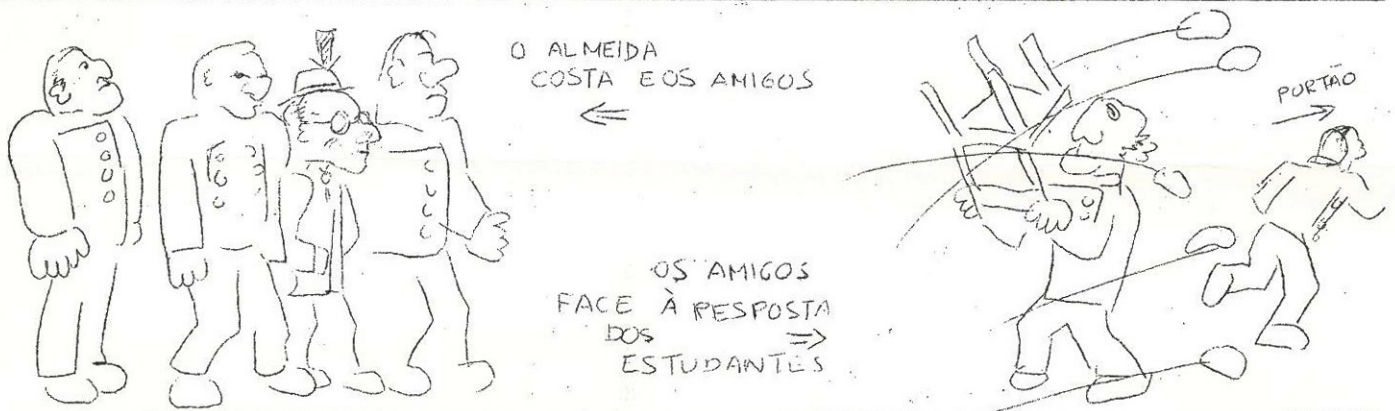 O ALMEIDA
COSTA E OS AMIGOS
OS AMIGOS
FACE À RESPOSTA
DOS
ESTUDANTES
PORTÃO